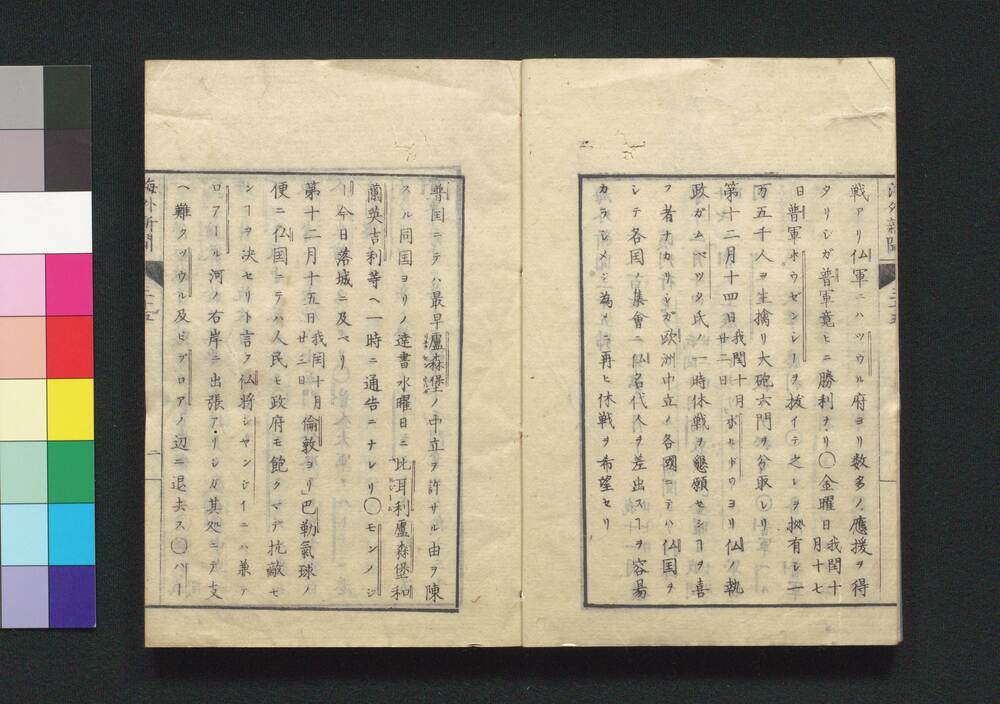 戦アリ仏軍ニハツウル府ヨリ数多ノ應援ヲ得
タリシガ普軍竟ヒニ勝利ナリ〇金曜日我閏十月十七
日普軍ホウゼンレーヲ抜イテ之レヲ拠有シ一
万五千人ヲ生擒リ大砲六門ヲ分取レリ
第十二月十四日我閏十月廿二日ボルドウヨリ仏ノ執
政ガムベツタ氏ノ一時休戦ヲ懇願セシヿヲ喜
フ者ナカリシガ欧洲中立ノ各國ニテハ仏国ヲ
シテ各国ノ集會ニ仏名代人ヲ差出スヿヲ容易
カラシメンガ為メニ再ヒ休戦ヲ希望セリ
海外新聞
二十五
普国ニテハ最早盧森堡ノ中立ヲ許サル由ヲ陳
スル同国ヨリノ達書水曜日ニ比耳利盧森堡和
蘭英吉利等ヘ一時ニ通告ニナレリ〇モンノジ
ー今日落城ニ及ベリ
第十二月十五日我閏十月廿三日倫敦ヨリ巴勒氣球ノ
便ニ仏国ニテハ人民モ政府モ飽クマデ抗敵セ
ンヿヲ決セリト言フ仏将シヤンジイニハ兼テ
ロアール河ノ右岸ニ出張アリシガ其処ニテ支
ヘ難クツウル及ビブロアノ辺ニ退去ス〇ハー
海外新聞
二十五
二